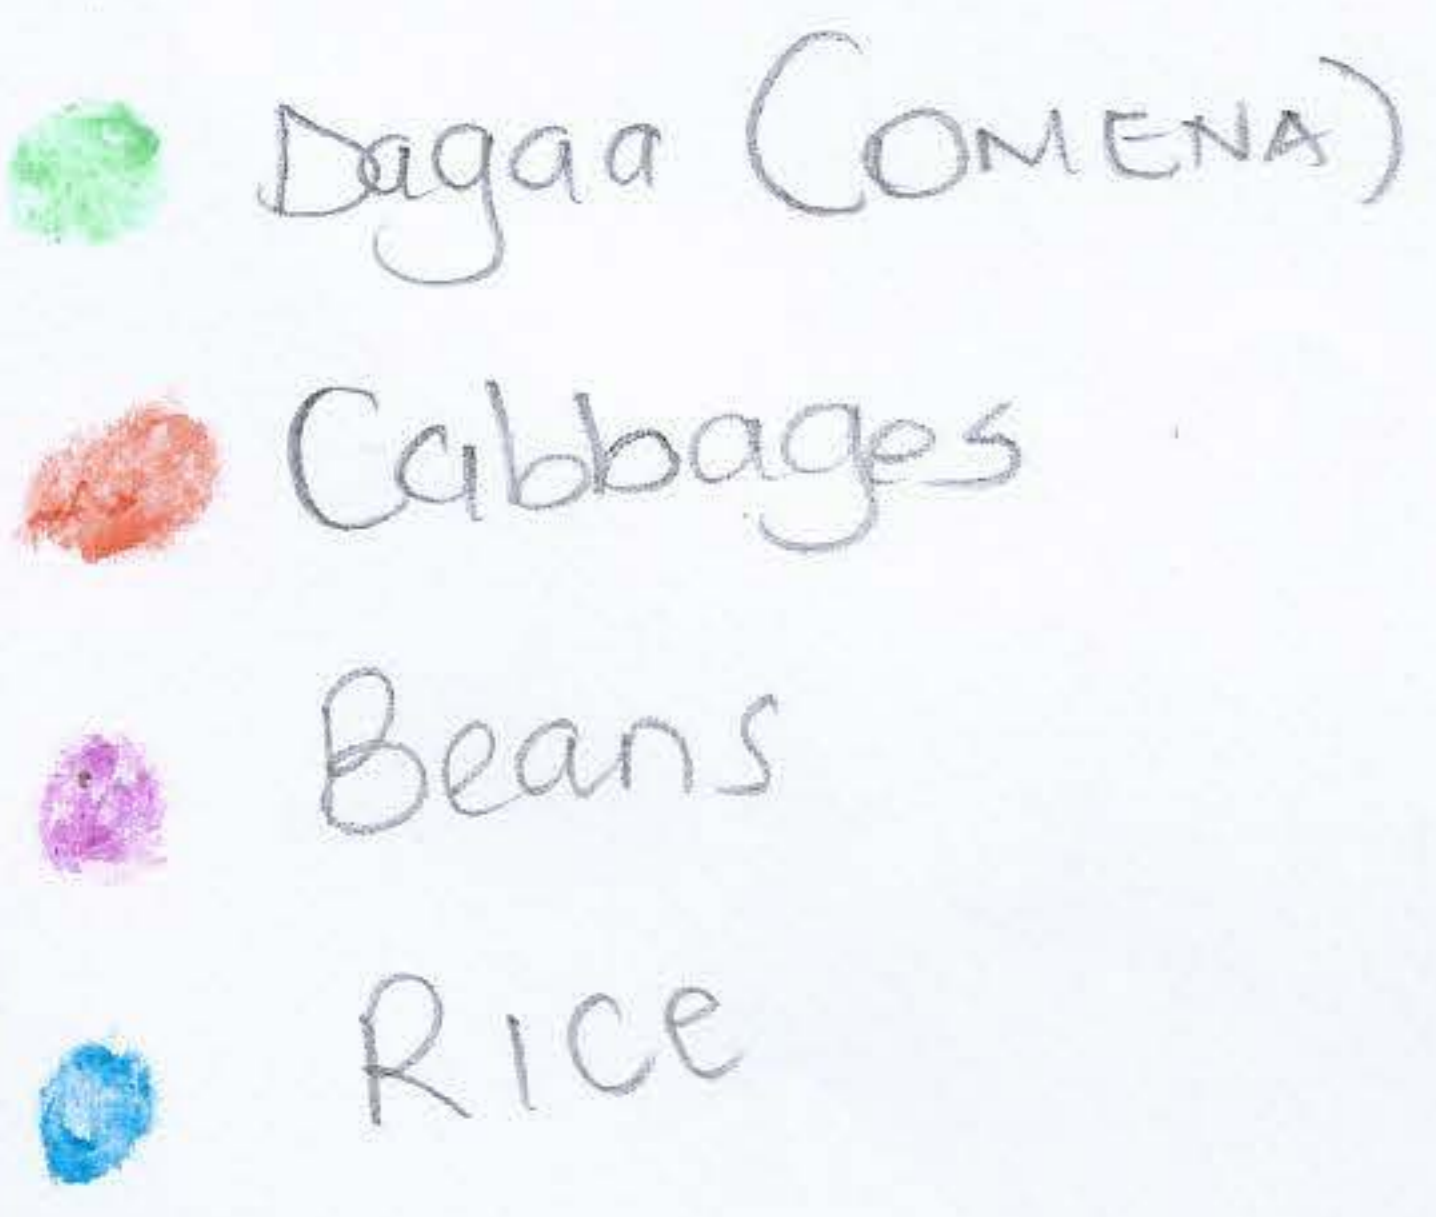 Dagaa (OMENA)
Cabbages
Beans
Rice